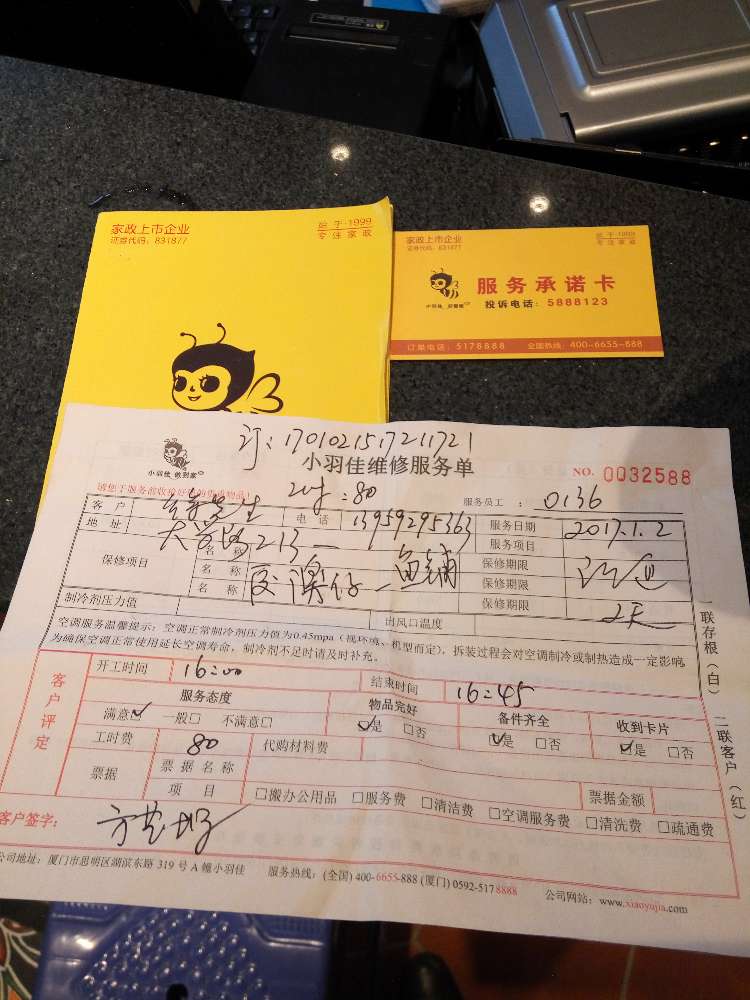 家政上市企业
证券代码：831877
始于·1999
专注家政
家政上市企业
证券代码：831877
始于·1999
专注家政
服务承诺卡
投诉电话：5888123
订单电话：5178888 全国热线：400-6655-888
订：1701021517211721
小羽佳 做到家
小羽佳维修服务单
NO. 0032588
请您于服务前收拾好
服务员工：0136
客户 先生 电话 13959295363 服务日期 2017.1.2
地址 213 服务项目
保修项目 名称 保修期限
名称 保修期限
名称 保修期限
制冷剂压力值 出风口温度
空调服务温馨提示：空调正常制冷剂压力值为0.45mpa（视环境、机型而定），拆装过程会对空调制冷或制热造成一定影响，
为确保空调正常使用延长空调寿命，制冷剂不足时请及时补充。
客户评定
开工时间 16:00 结束时间 16:45
服务态度 物品完好 备件齐全 收到卡片
满意☑ 一般□ 不满意□ ☑是 □否 ☑是 □否 ☑是 □否
工时费 80 代购材料费
票据 票据名称
项目 □搬办公用品 □服务费 □清洁费 □空调服务费 □清洗费 □疏通费
票据金额
客户签字：
公司地址：厦门市思明区湖滨东路 319 号 A 幢小羽佳 服务热线：(全国) 400-6655-888 (厦门) 0592-517 8888 公司网站：www.xiaoyujia.com
一联存根（白） 二联客户（红）